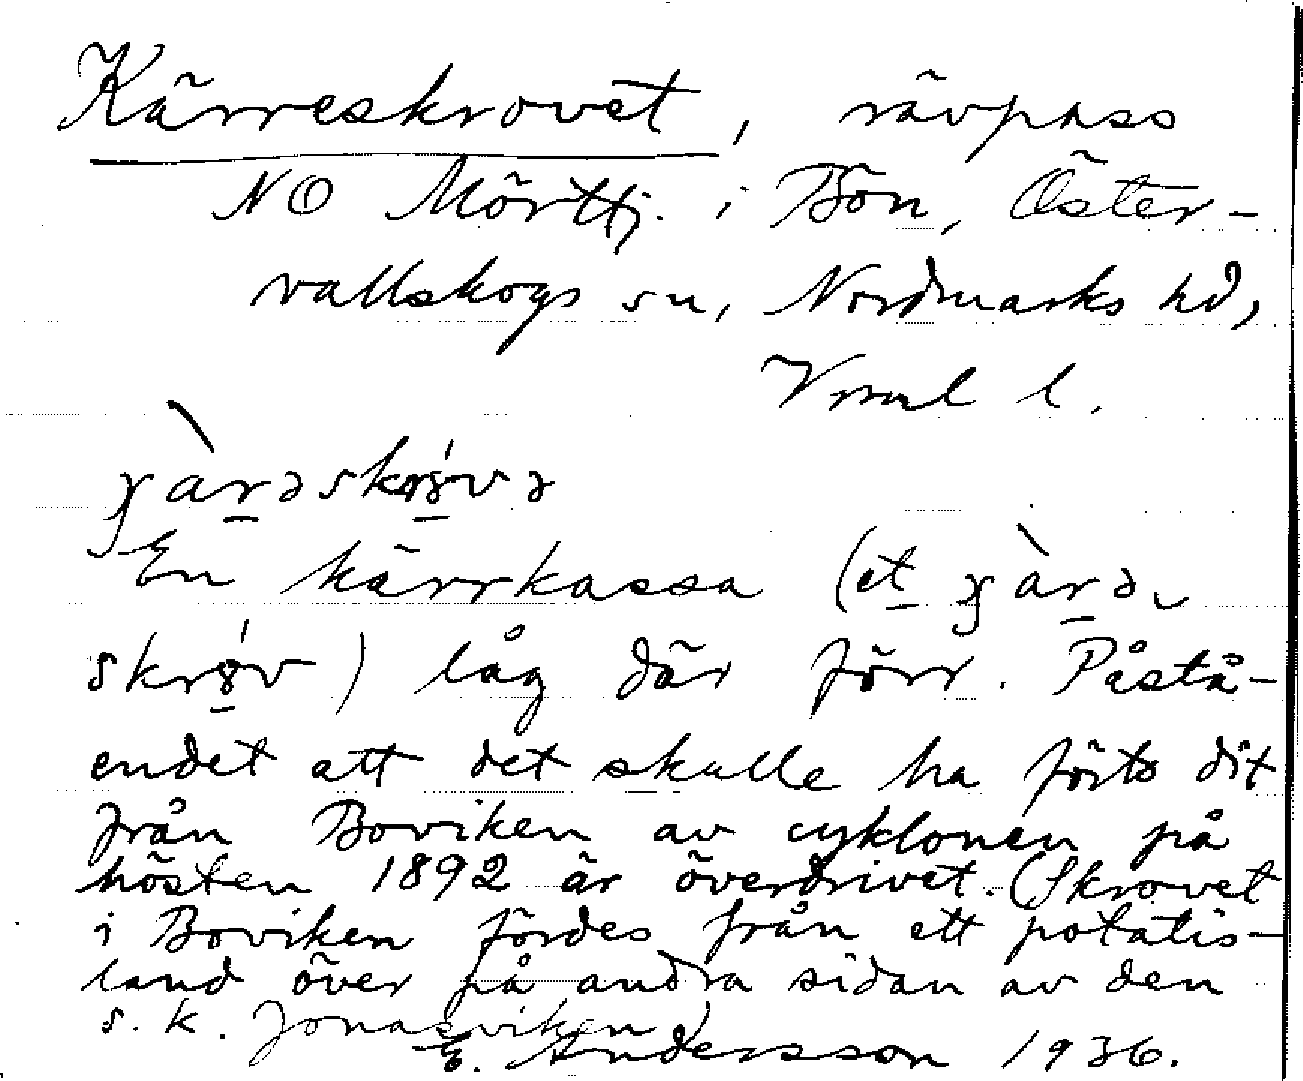 Kärreskrovet, rävpass
NO Mörttj. i Bön, Öster-
vallskogs sn, Nordmarks hd,
Vrml l.
En kärrkassa (et
) låg där förr. Påstå-
endet att det skulle ha förts dit
från Boviken av cyklonen på
hösten 1892 är överdrivet. (Skrovet
i Boviken fördes från ett potatis-
land över på andra sidan av den
s. k. Jonasviken)
E. Andersson 1936.